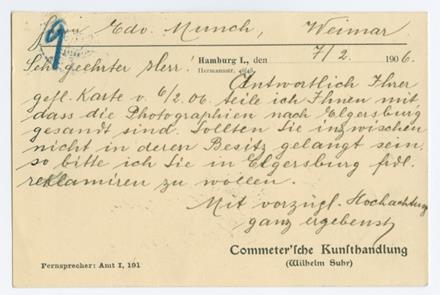 Herrn Edv. Munch, Weimar
9
Hamburg I., den 7/2. 1906.
Hermannstr.
Sehr geehrter Herr!
Antwortlich Ihrer
gefl. Karte v. 6/2.06. teile ich Ihnen mit,
dass die Photographien nach Elgersburg
gesandt sind. Sollten Sie inzwischen
nicht in deren Besitz gelangt sein,
so bitte ich Sie in Elgersburg frdl.
reklamiren zu wollen.
Mit vorzügl. Hochachtung
ganz ergebenst
Commeter'sche Kunsthandlung
(Wilhelm Suhr)
Fernsprecher: Amt I, 191